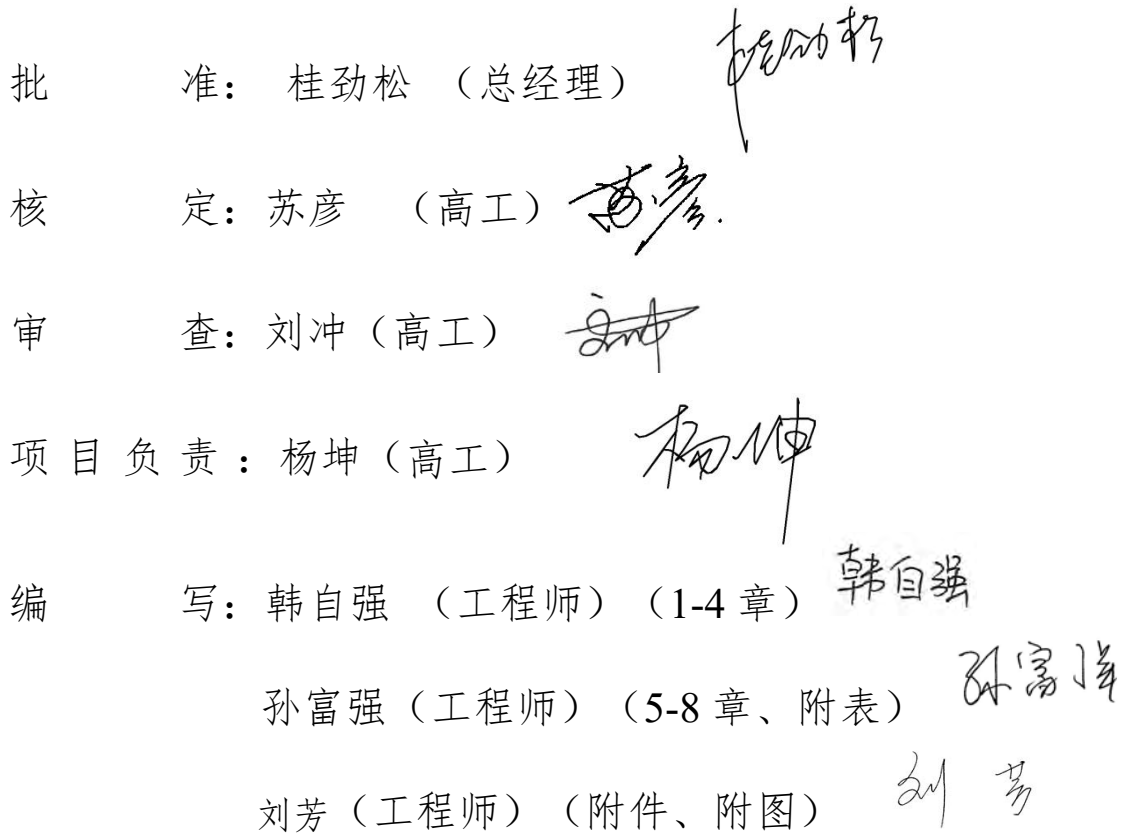 批 准： 桂劲松 （总经理） 桂劲松
核 定：苏彦 （高工） 苏彦.
审 查：刘冲（高工） 刘冲
项目负责：杨坤（高工） 杨坤
编 写：韩自强 （工程师）（1-4 章） 韩自强
孙富强（工程师）（5-8 章、附表） 孙富强
刘芳（工程师）（附件、附图） 刘芳